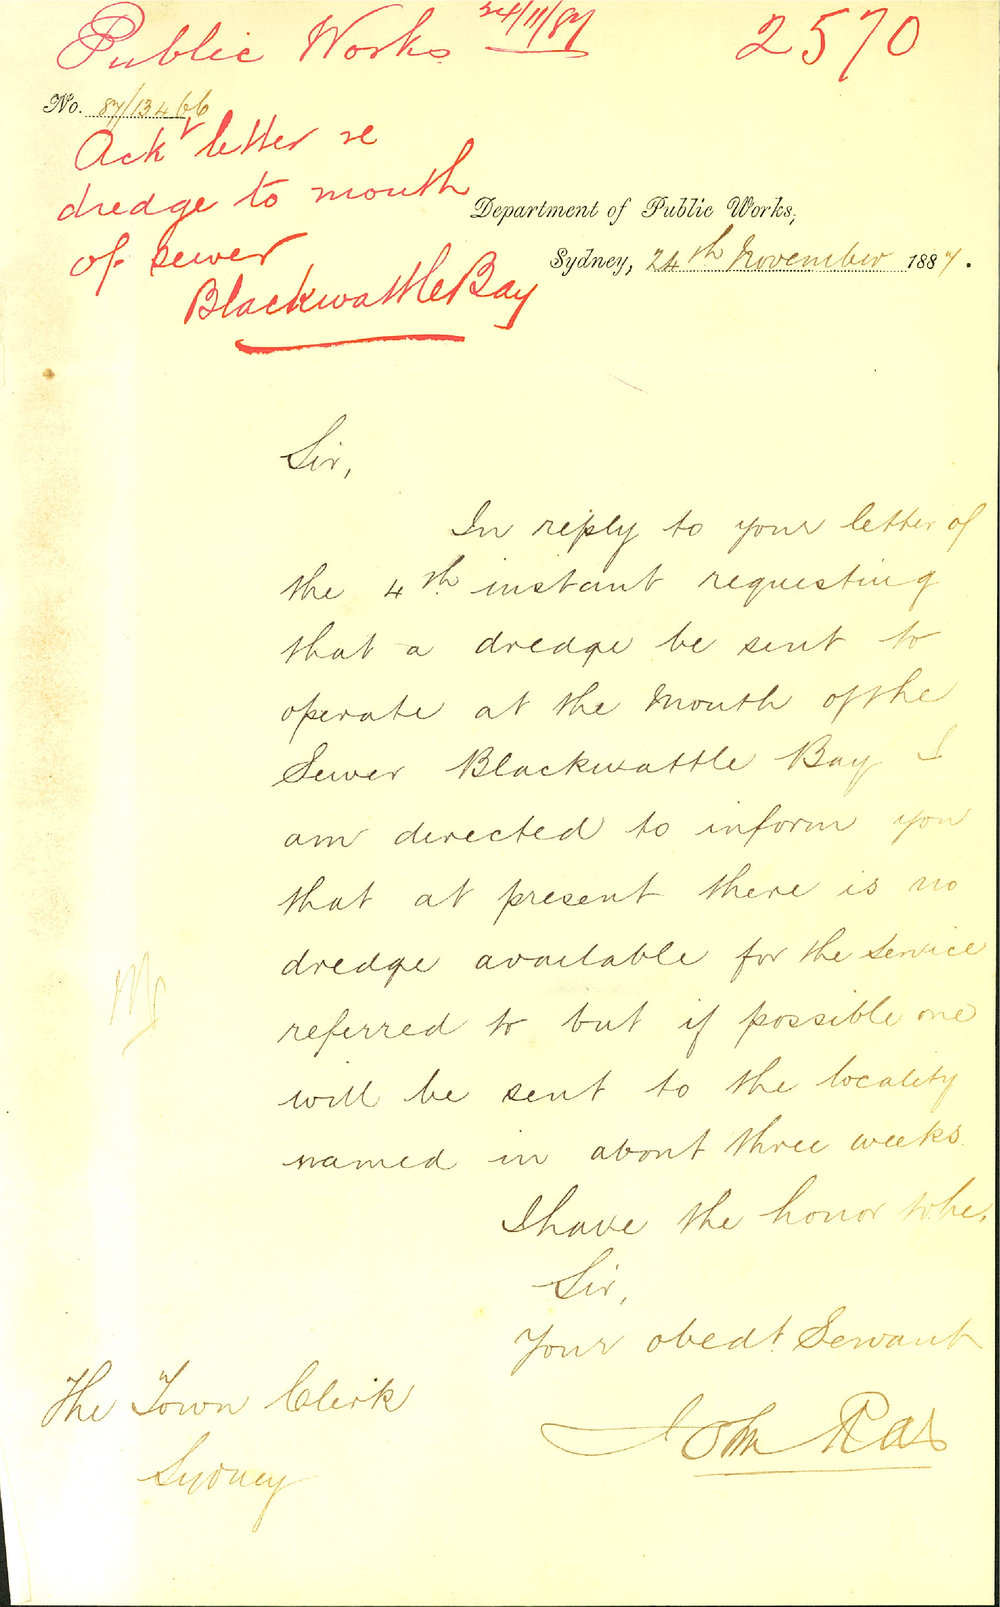 Public Works 24/11/87
2570
No. 87/13466
Ack letter re
dredge to mouth
of sewer
Blackwattle Bay
Department of Public Works,
Sydney, 24th November 1887.
Sir,
In reply to your letter of
the 4th instant requesting
that a dredge be sent to
operate at the Mouth of the
Sewer Blackwattle Bay I
am directed to inform you
that at present there is no
dredge available for the service
referred to but if possible one
will be sent to the locality
named in about three weeks.
I have the honor to be,
Sir,
Your obedt. Servant
John Rae
The Town Clerk
Sydney